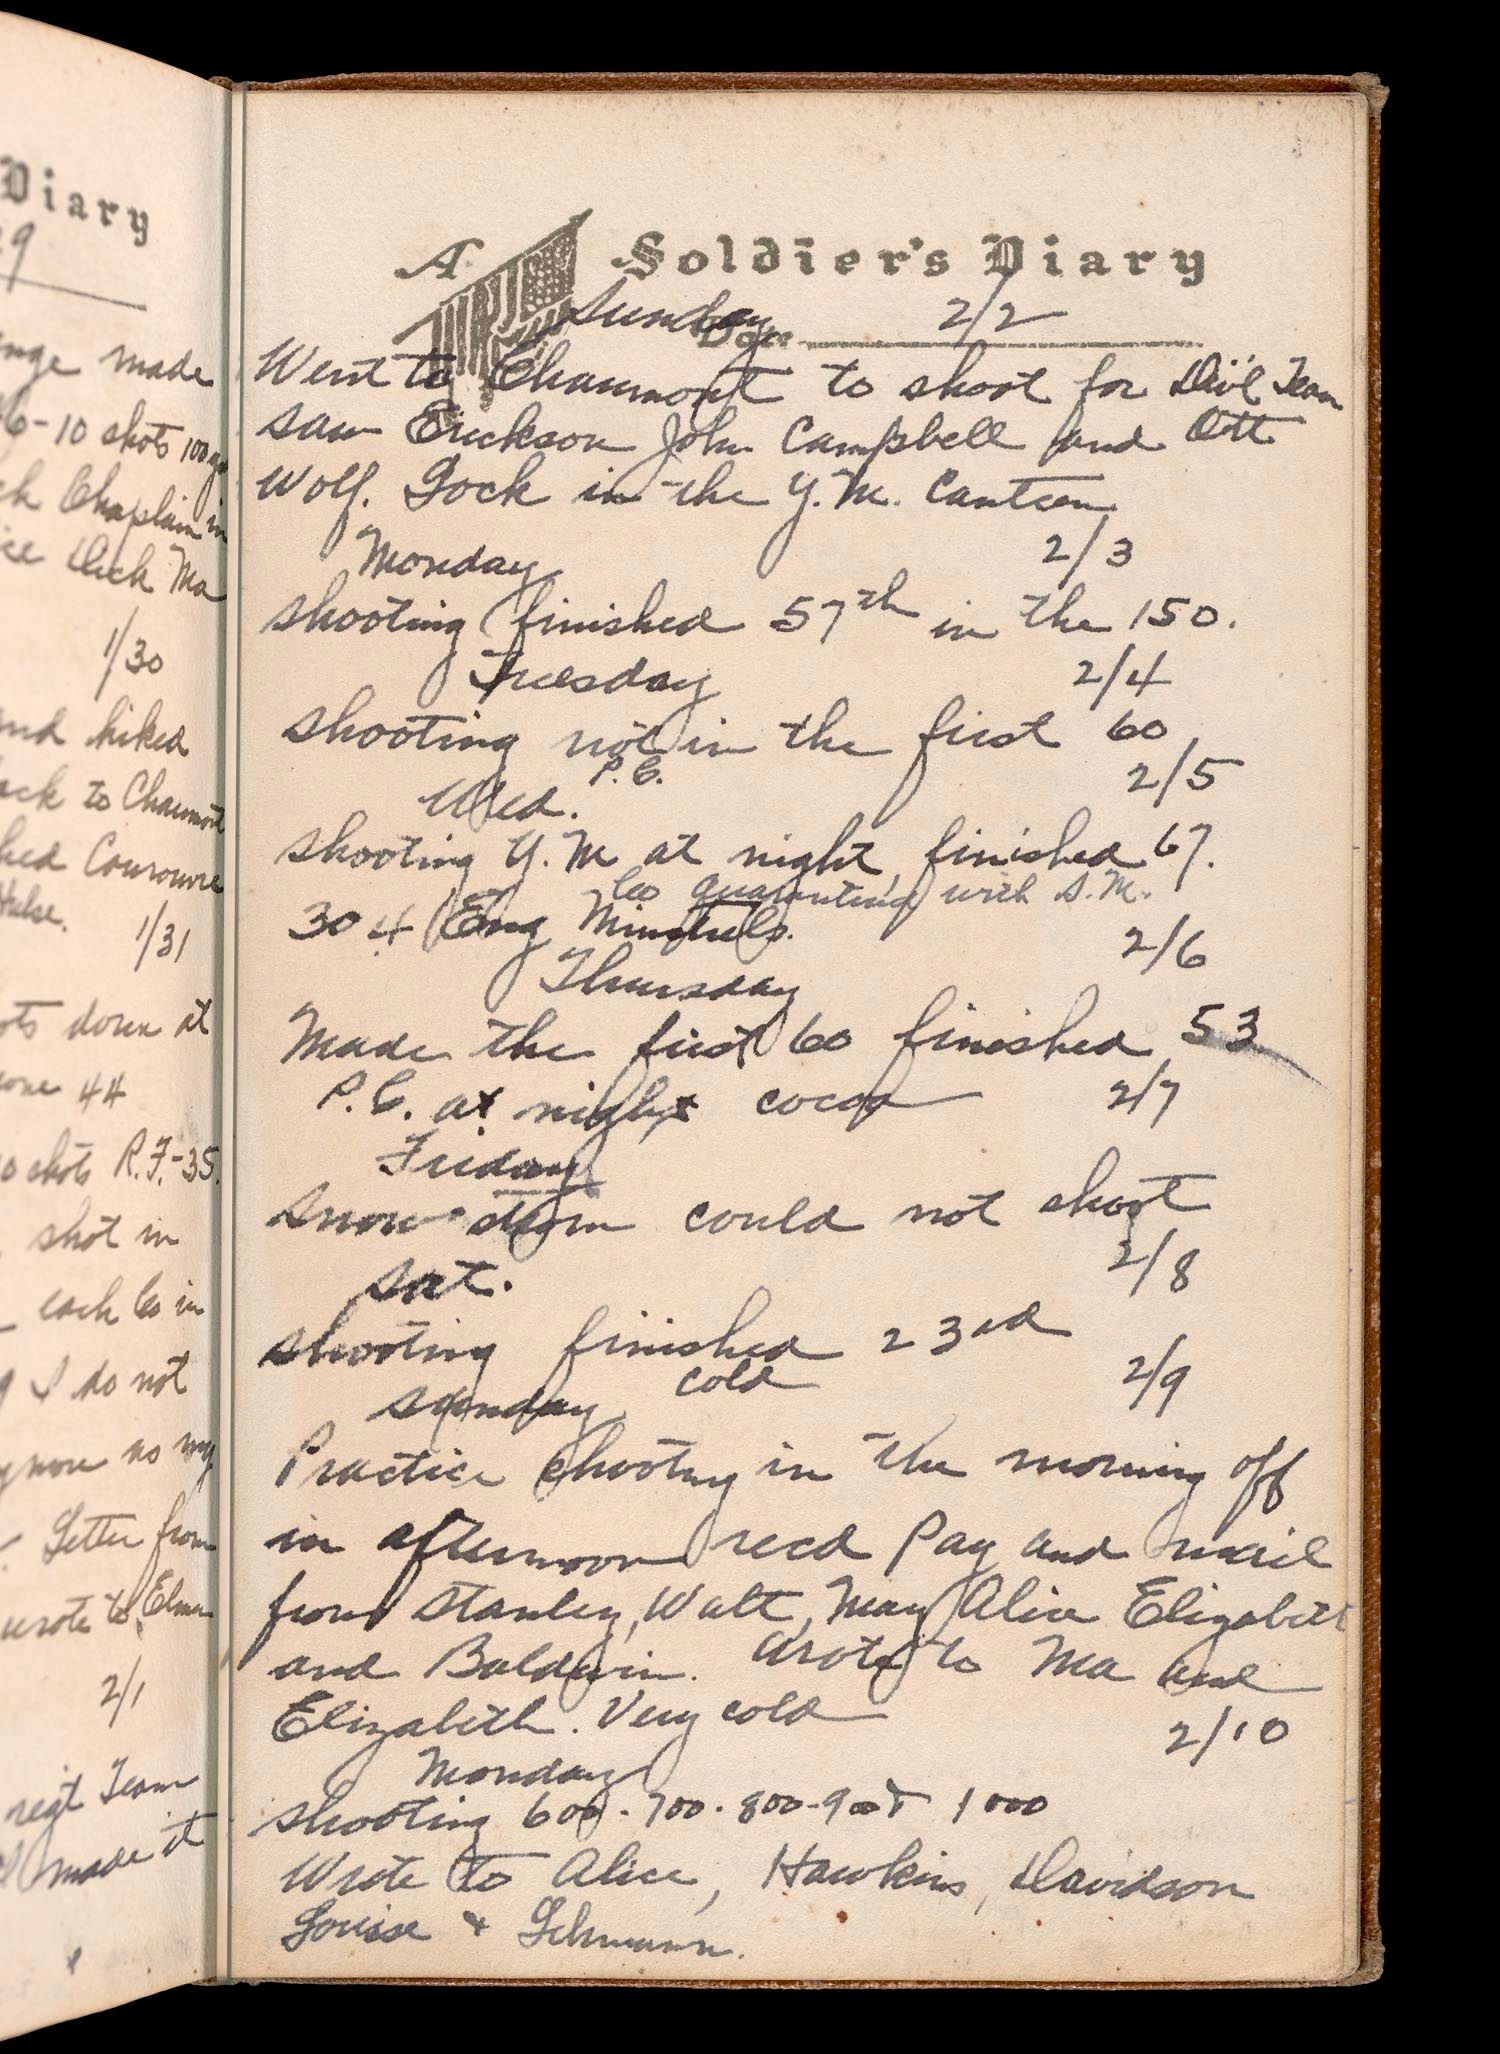 Diary
29
made
6-10 shots 100 yd
Chaplain in
Dick Ma
1/30
and hiked
back to Chaumont
Hulse.
1/31
down at
44
shots R.F.-35.
shot in
each Co in
I do not
as my
Letter from
wrote to Elmer
2/1
regt Team
made it
A Soldier's Diary
Sunday 2/2
Date
Went to Chaumont to shoot for Div'l Team
saw Erickson John Campbell and Ott
Wolf. Gock in the Y.M. Canteen
Monday 2/3
shooting finished 57th in the 150.
Tuesday 2/4
shooting not in the first 60
P.C.
Wed. 2/5
shooting Y.M at night finished 67.
Co quarantined with S.M.
304 Eng Minstrels.
Thursday 2/6
Made the first 60 finished 53
P.C. at night cocoa 2/7
Friday
Snow storm could not shoot
Sat. 2/8
shooting finished 23rd
cold
Sunday 2/9
Practice shooting in the morning off
in afternoon recd Pay and mail
from Stanley, Walt, May Alice Elizabeth
and Baldwin. Wrote to Ma and
Elizabeth. Very cold
Monday 2/10
shooting 600-700-800-900 1000
Wrote to Alice, Hawkins, Davidson
Louise & Lehmann.